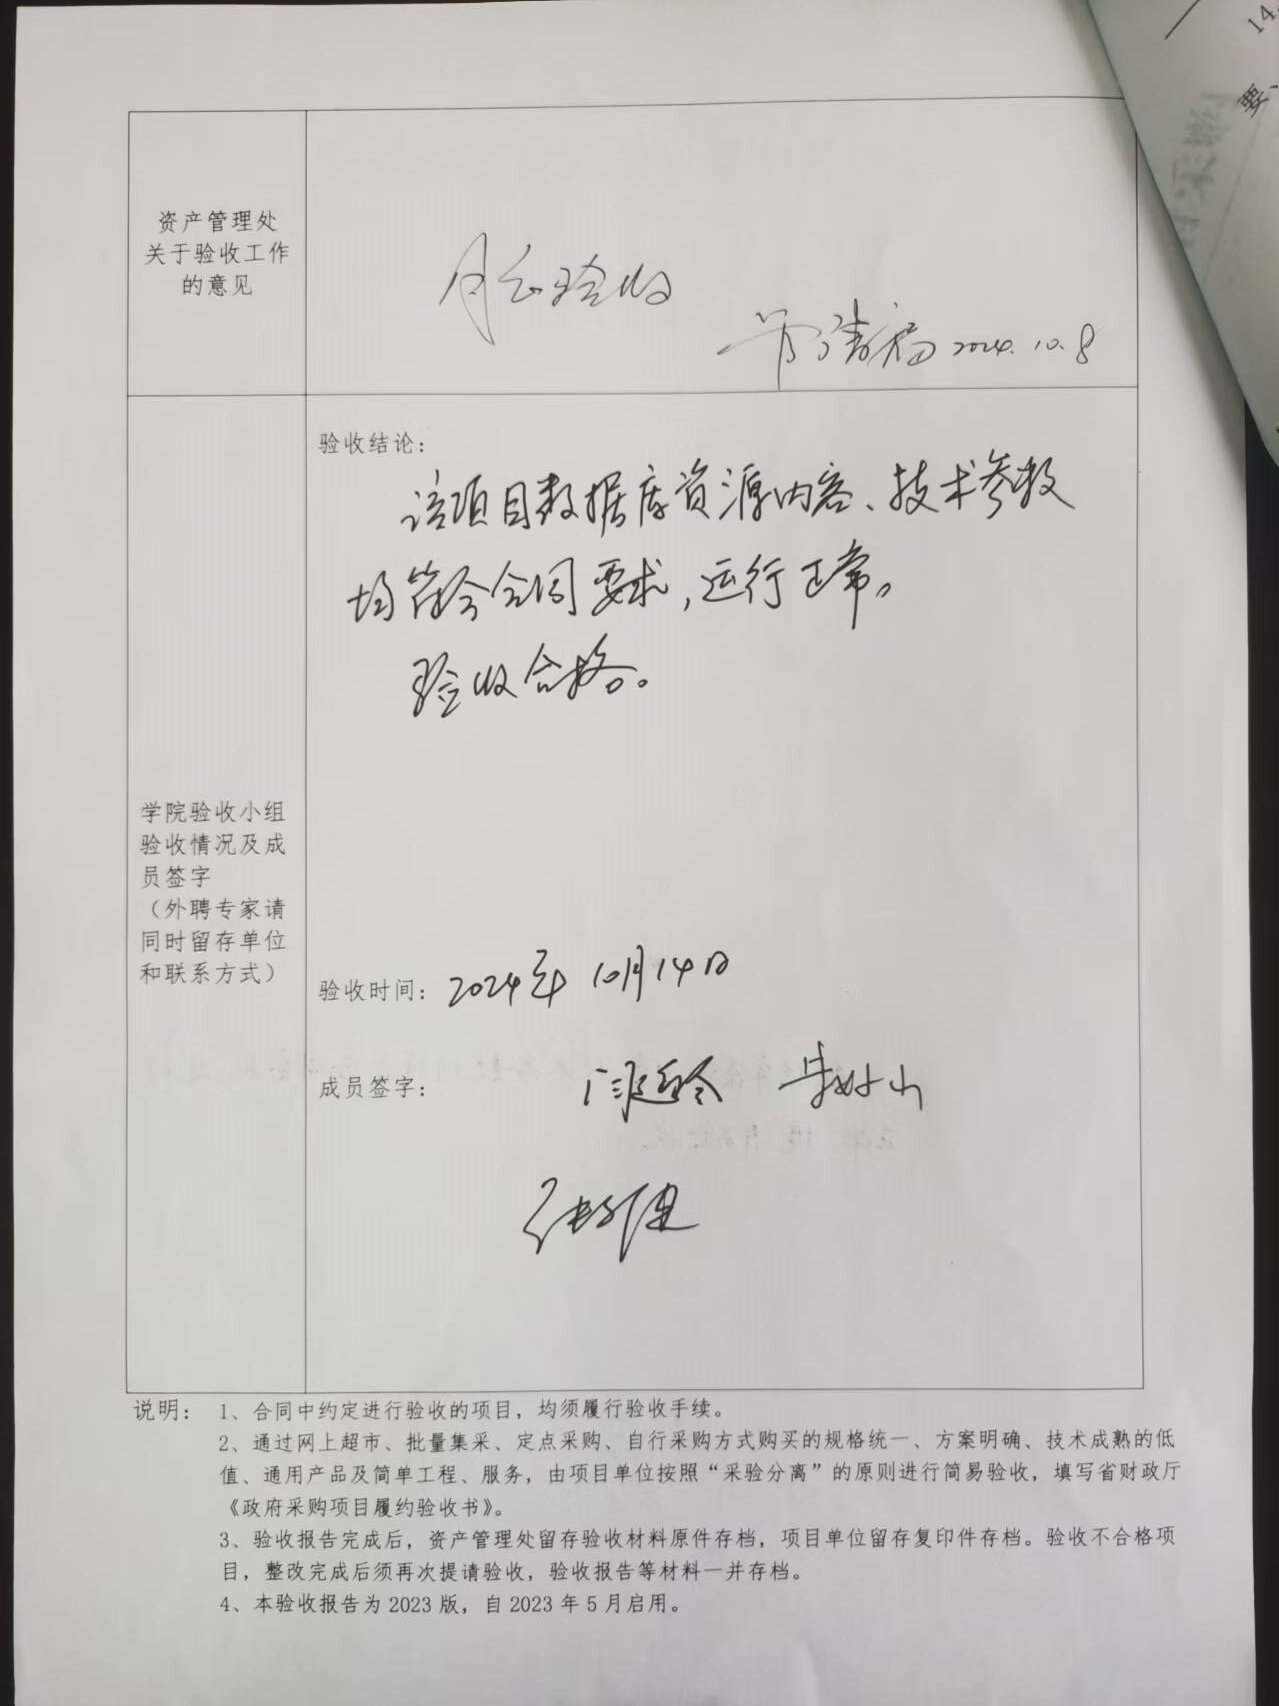 14.
要、
资产管理处
关于验收工作
的意见
同意验收
2024.10.8
验收结论：
该项目数据库资源内容、技术参数
均符合合同要求，运行正常。
验收合格。
学院验收小组
验收情况及成
员签字
（外聘专家请
同时留存单位
和联系方式）
验收时间：2024年10月14日
成员签字：
说明： 1、合同中约定进行验收的项目，均须履行验收手续。
2、通过网上超市、批量集采、定点采购、自行采购方式购买的规格统一、方案明确、技术成熟的低
值、通用产品及简单工程、服务，由项目单位按照“采验分离”的原则进行简易验收，填写省财政厅
《政府采购项目履约验收书》。
3、验收报告完成后，资产管理处留存验收材料原件存档，项目单位留存复印件存档。验收不合格项
目，整改完成后须再次提请验收，验收报告等材料一并存档。
4、本验收报告为 2023 版，自 2023 年 5 月启用。